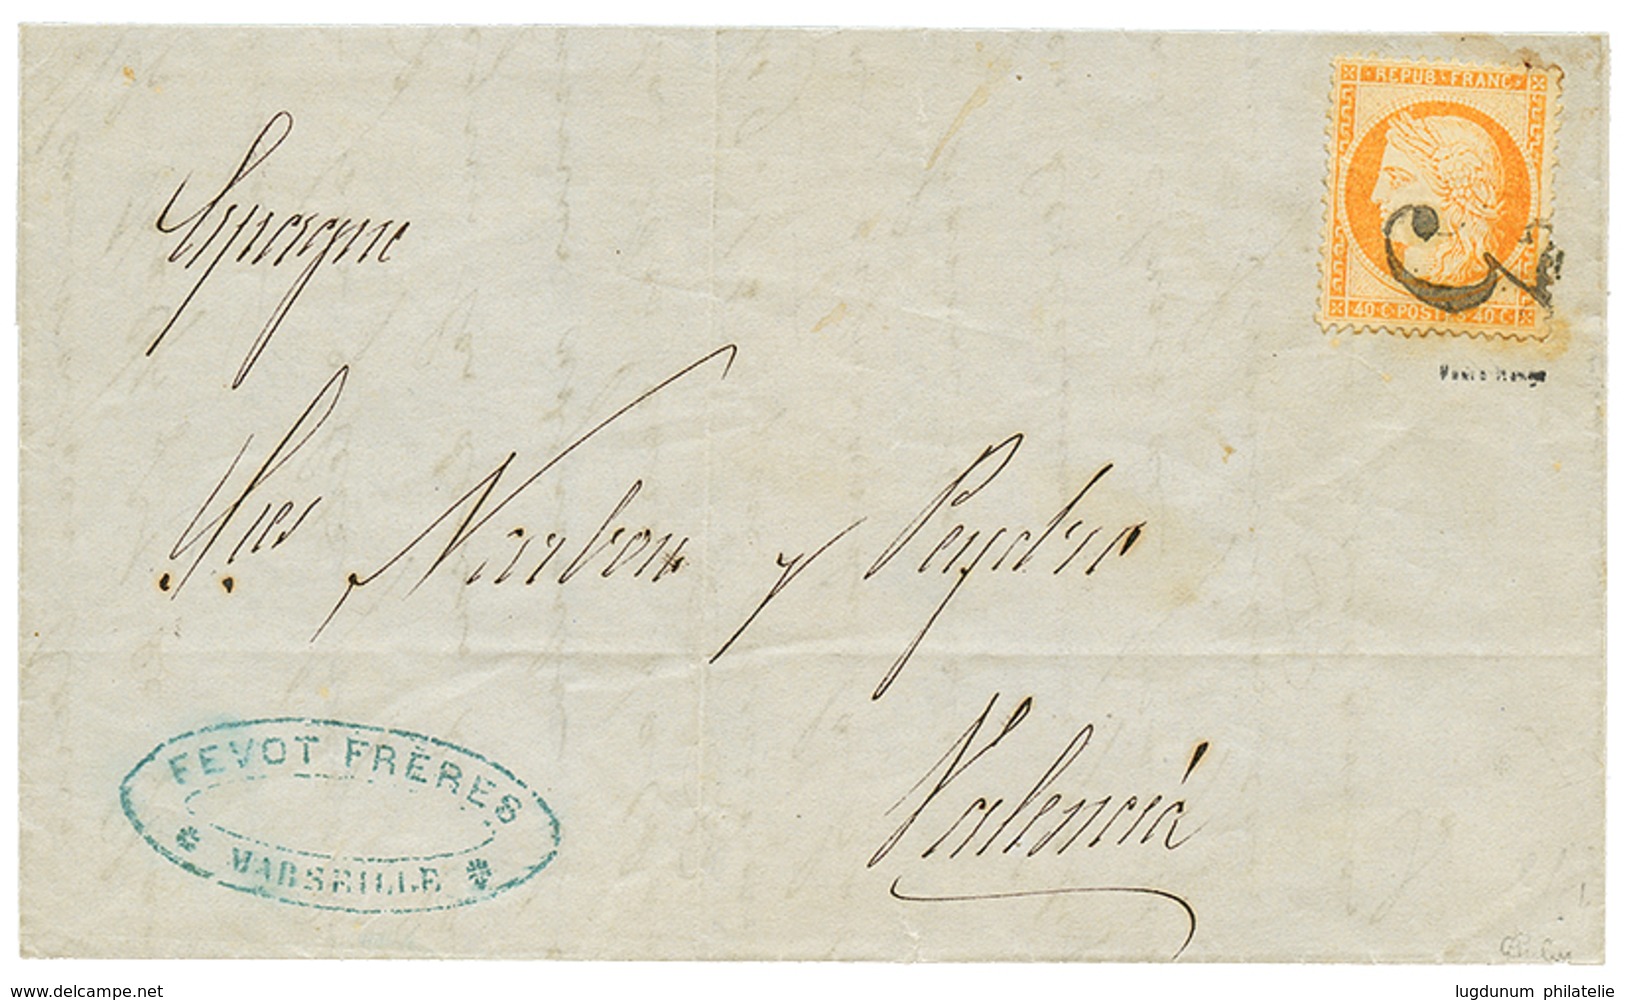 REPUB FRANC
40 C POSTES 40 C
Espagne
Mrs Narbon y Peydro
Valencia
FEVOT FRÈRES
MARSEILLE
www.delcampe.net
lugdunum philatelie